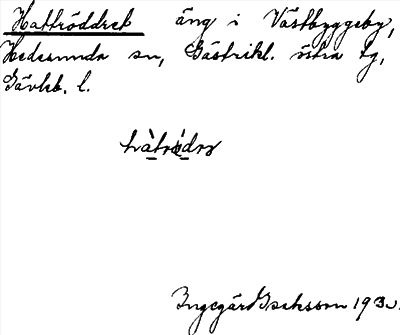 Hattröddrek äng i Västbyggeby,
Hedesunda sn, Gästrikl. östra tg,
Gävleb. l.
Ingegärd Isaksson 1930.